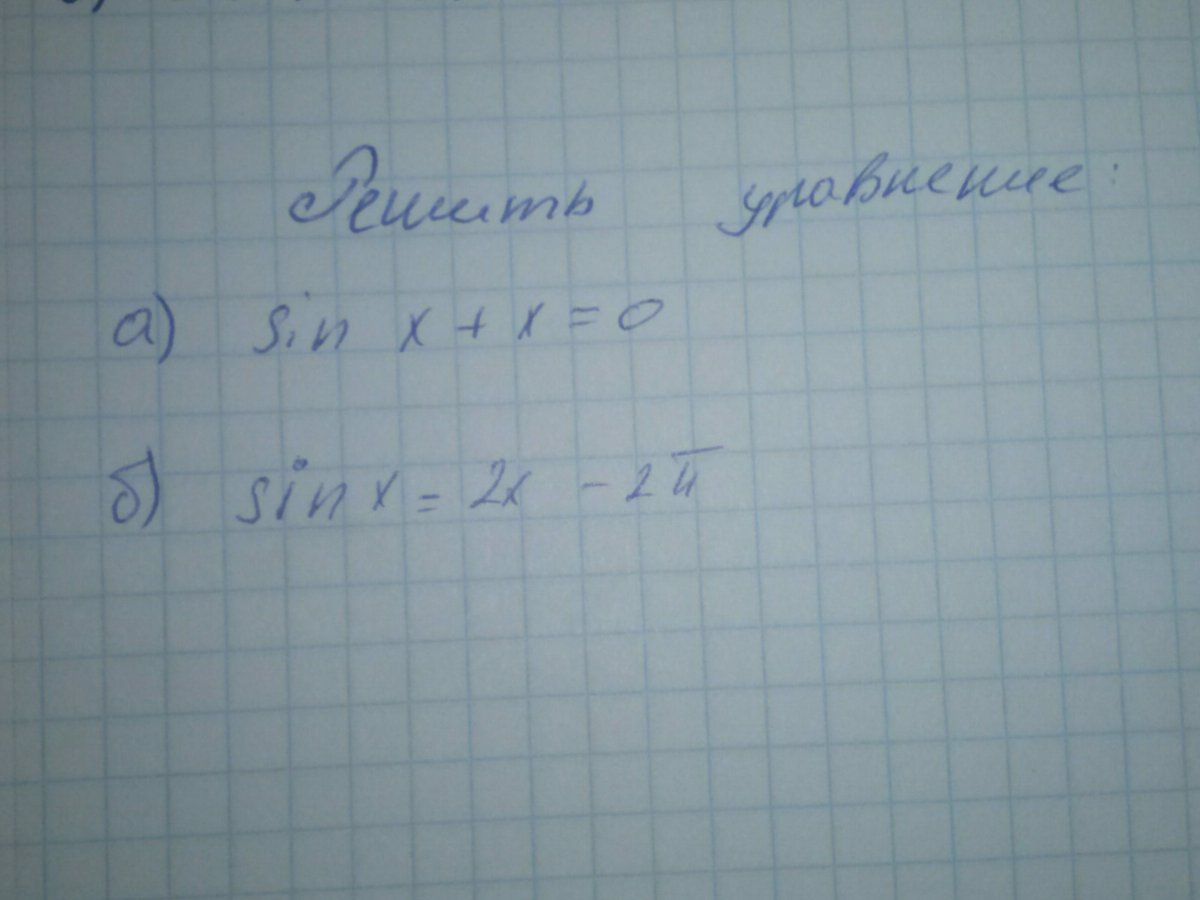 Решить уравнение:
а) sin x + x = 0
б) sin x = 2x - 2π